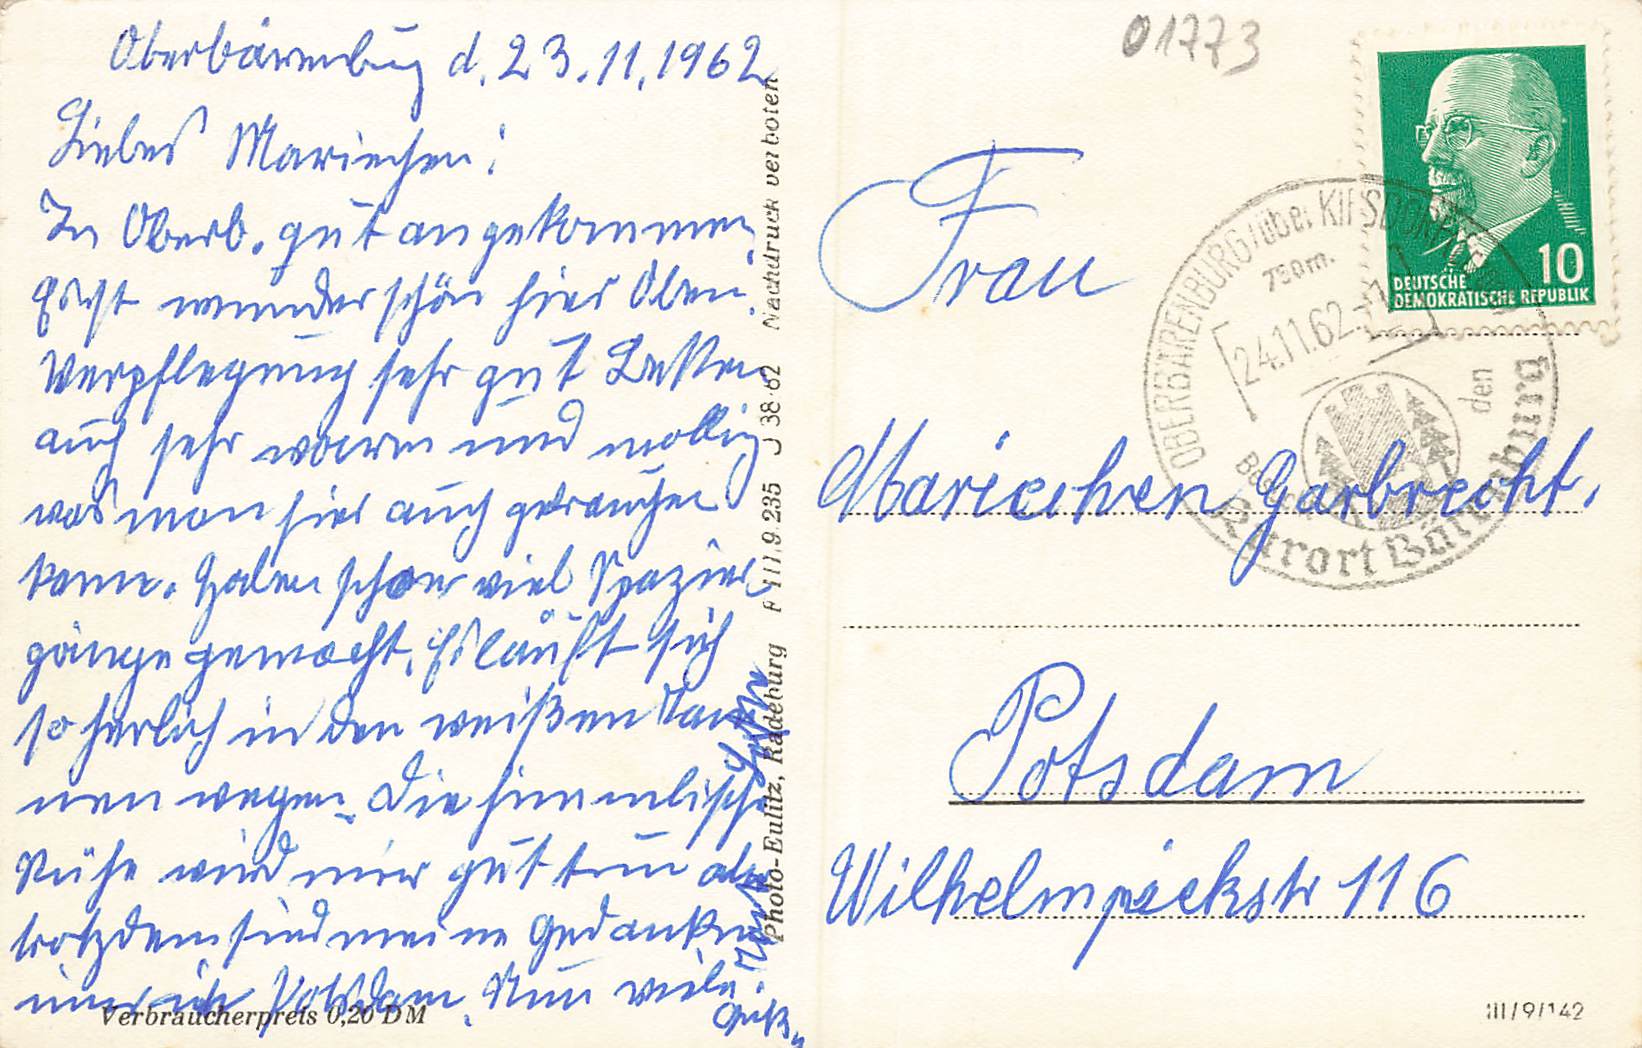 Oberbärenburg d. 23.11.1962
Liebes Mariechen!
In Oberb. gut angekommen
Es ist wunderschön hier Oben.
Verpflegung sehr gut Betten
auch sehr warm und mollig
was man hier auch gebrauchen
kann. Haben schon viel Spazier
gänge gemacht. Es läuft sich
so herlich in den weißen Tan
nen wegen. Die himmlische
Ruhe wird mir gut tun aber
trotzdem sind meine Gedanken
immer in Potsdam. Nun viele
Grüße
Verbraucherpreis 0,20 DM
Photo-Eulitz, Radeburg F III.9.235 J 38-62 Nachdruck verboten
01773
DEUTSCHE
DEMOKRATISCHE REPUBLIK
10
OBERBÄRENBURG/über KIPSDORF
750m.
24.11.62
Besucht den
Kurort Bärenburg
Frau
Mariechen Garbrecht.
Potsdam
Wilhelmpieckstr 116
III/9/142